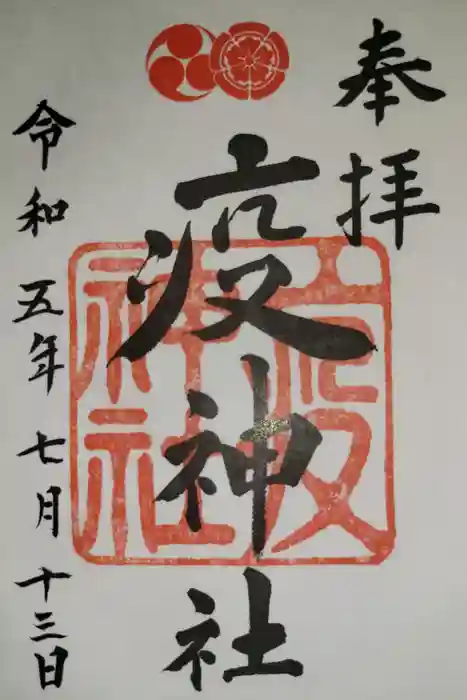 奉拝
疫神社
疫神社
令和五年七月十三日